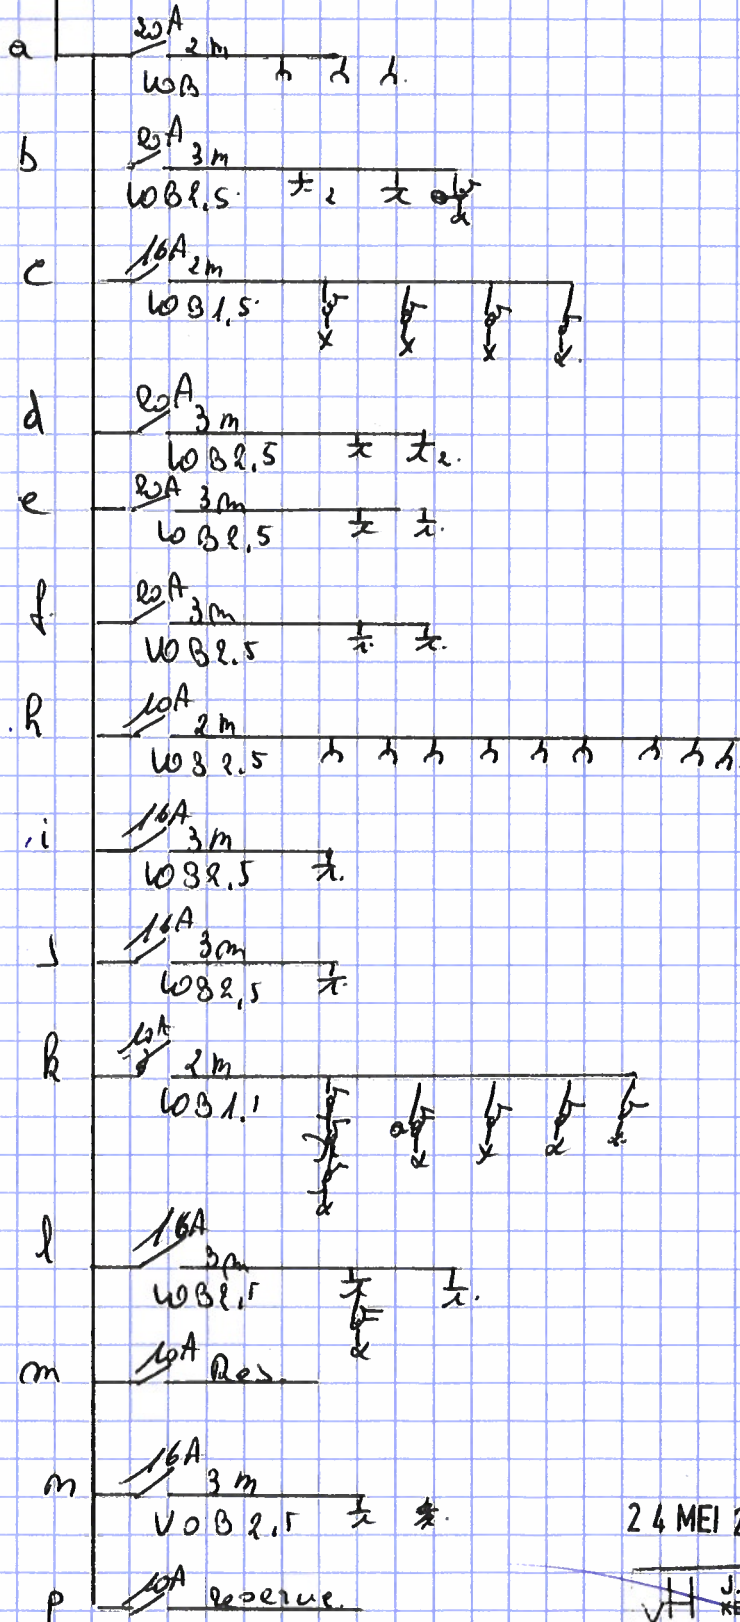 a 20A 2m
VOB
b 20A 3m
VOB2,5 2
c 16A 2m
VOB1,5
d 20A 3m
VOB2,5 2
e 20A 3m
VOB2,5
f 20A 3m
VOB2.5
h 10A 2m
VOB2.5
i 16A 3m
VOB2,5
j 16A 3m
VOB2,5
k 10A 2m
VOB1,
l 16A 3m
VOB2,5
m 10A Res.
n 16A 3m
VOB2,5
24 MEI 2
p 10A reserve.
J.